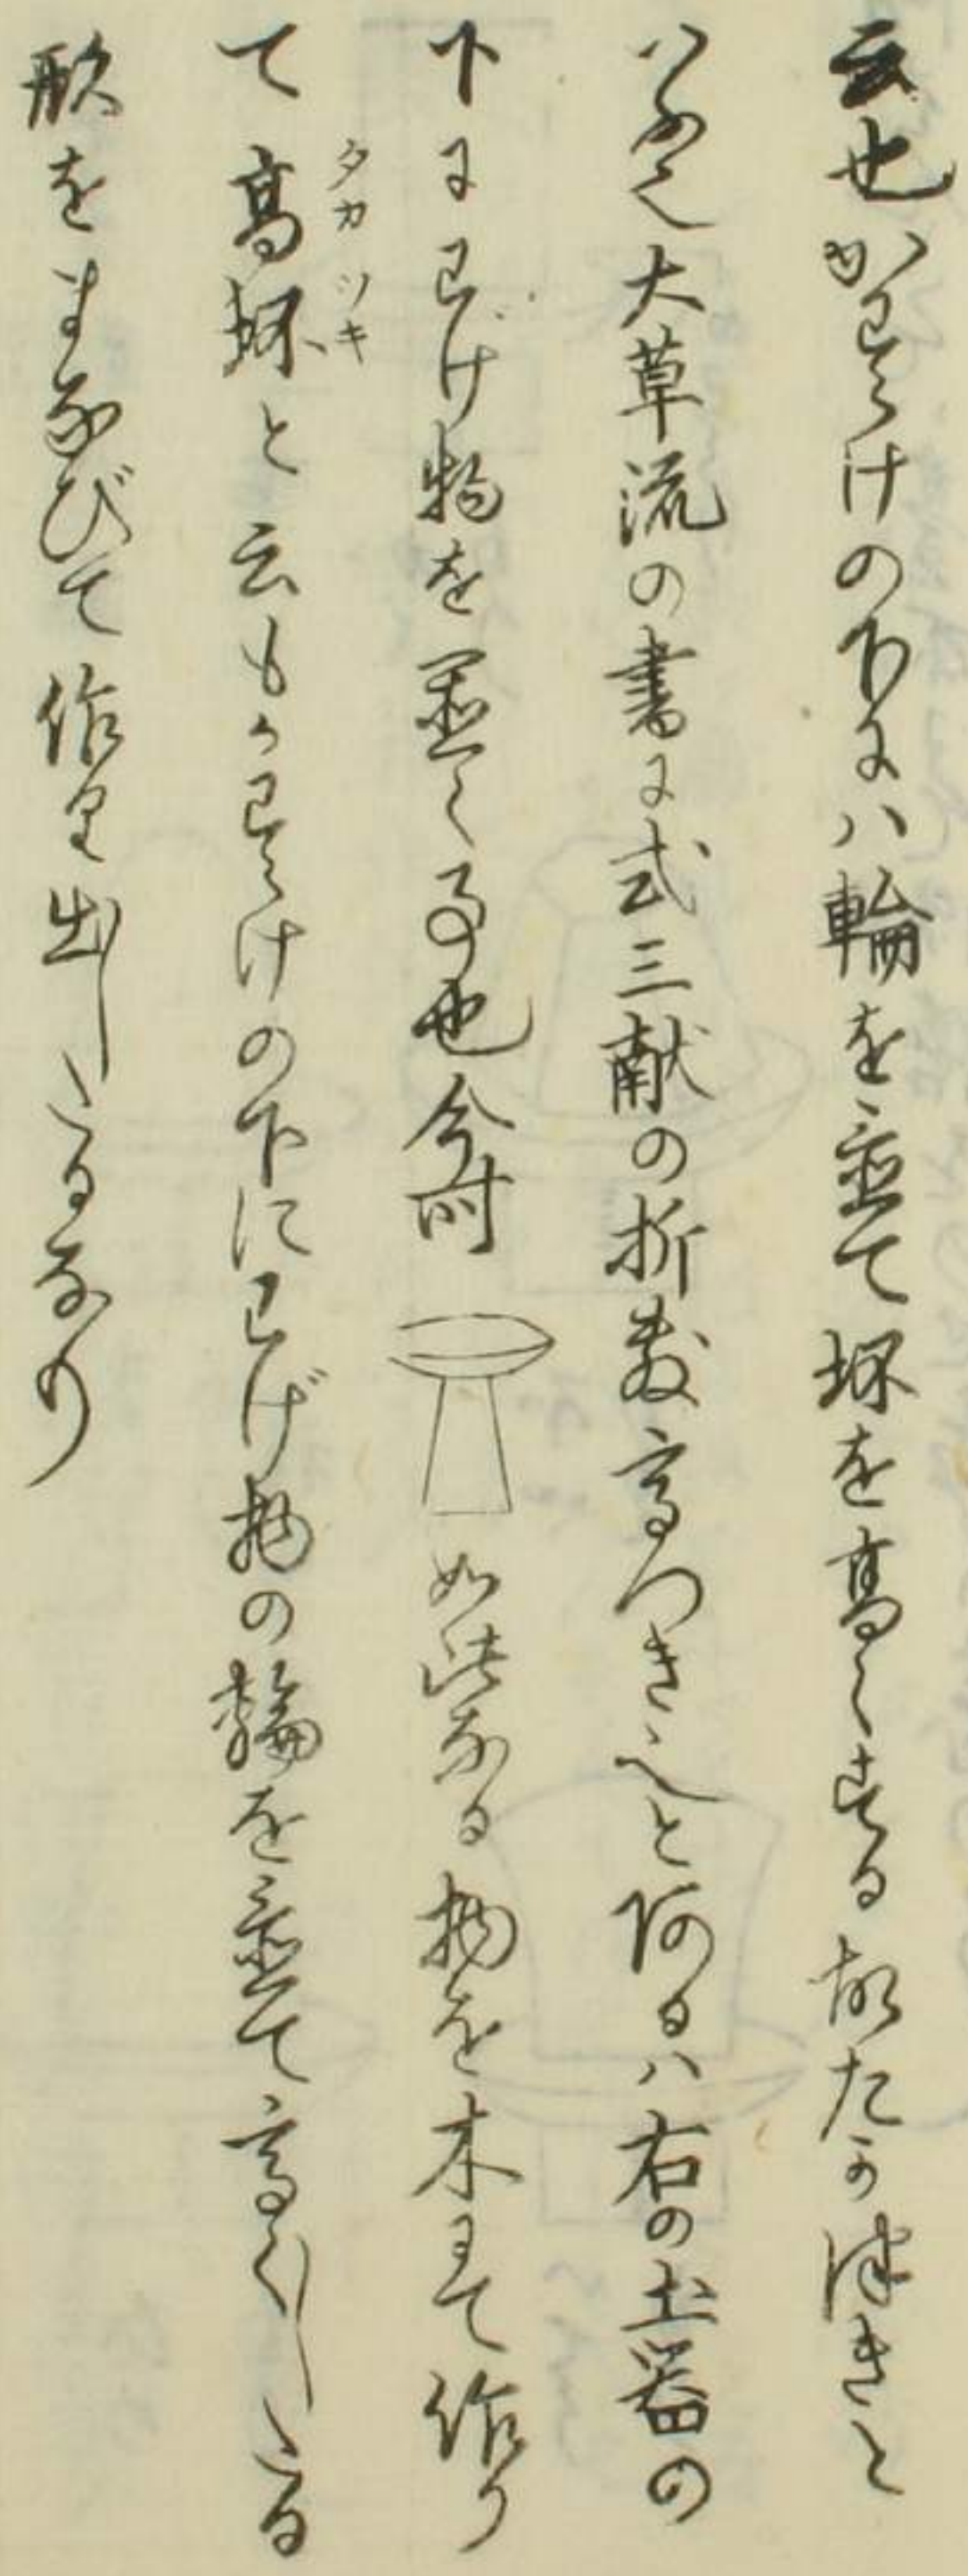 云也かわらけの下に八輪を置て坏を高くする故たかつきと
ハ云也大草流の書に式三献の折敷高つき也とあるハ右の土器の
下にわげ物を置く事也今時如此なる物を木にて作り
て高坏と云もかわらけの下にわげ物の輪を置て高くしたる
タカツキ
形をまなびて作り出したるなり